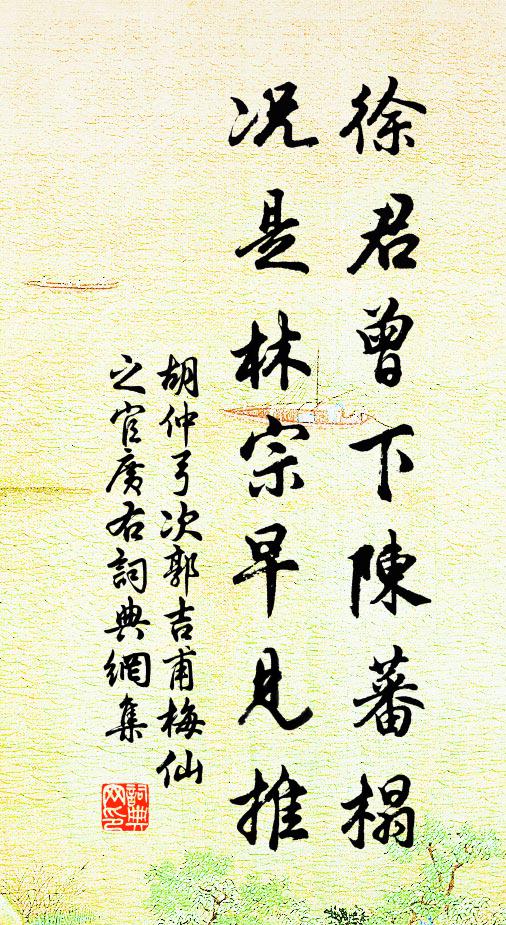 徐君曾下陳蕃榻
况是林宗早見推
胡仲弓次郭吉甫梅仙
之官廣右詞典網集
詞典
网印